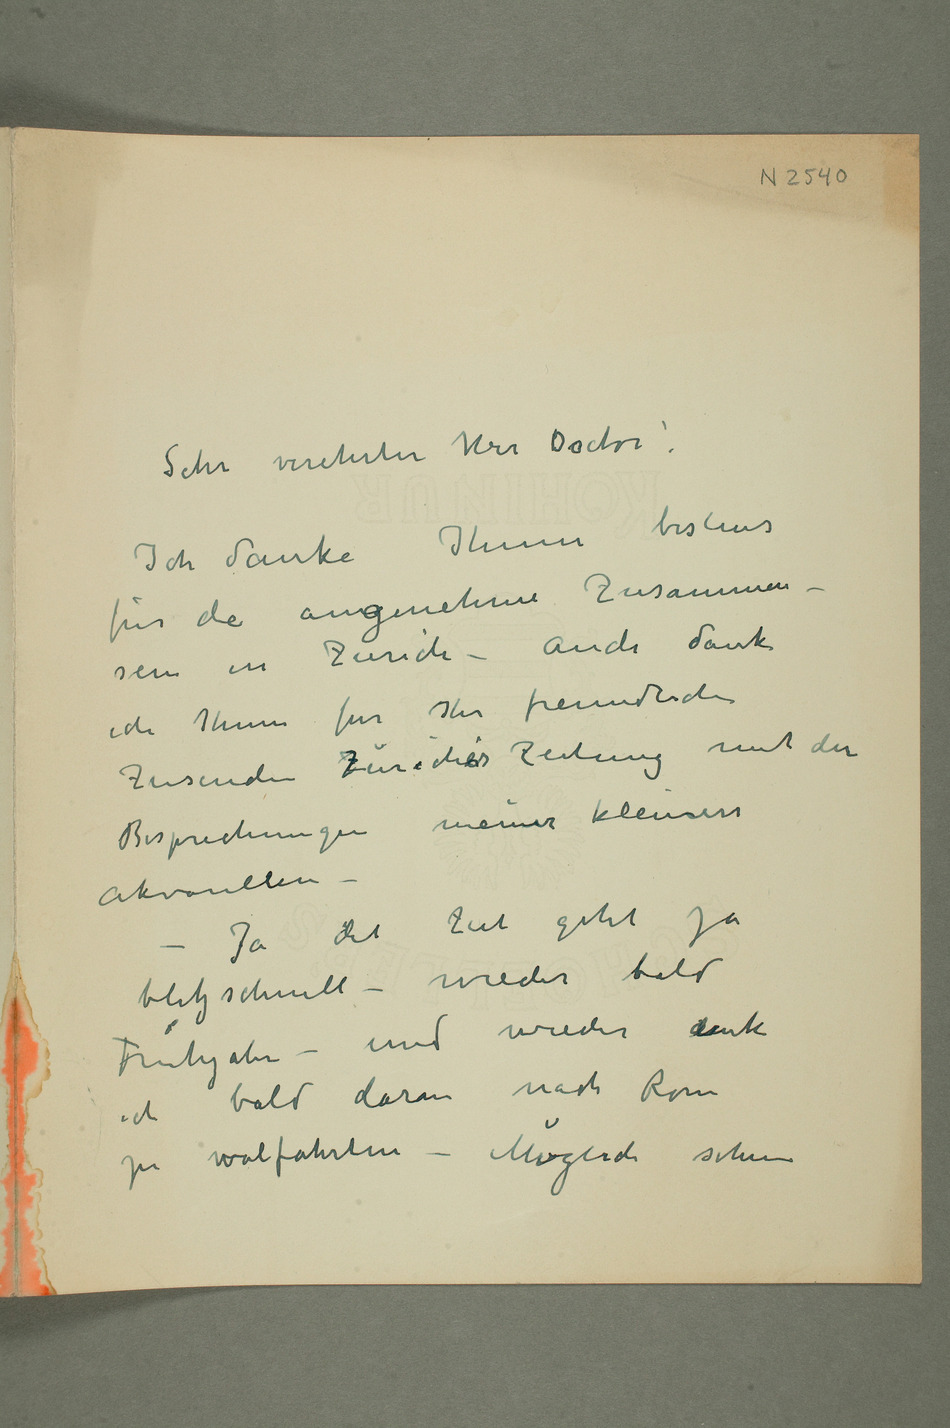 N 2540
Sehr verehrter Herr Doctor!
Ich danke Ihnen bestens
für de angenehme Zusammen–
sein in Zürich – Auch dank
ich Ihnen fur Ihr freundliche
Zusenden Züricher Zeitung mit der
Besprechungen meiner kleinern
Akvarellen –
– Ja det Zeit geht ja
blitzschnell – wieder bald
Frühjahr – und wieder denk
ich bald daran nach Rom
zu walfahrten – Möglich schon
KOHINUR